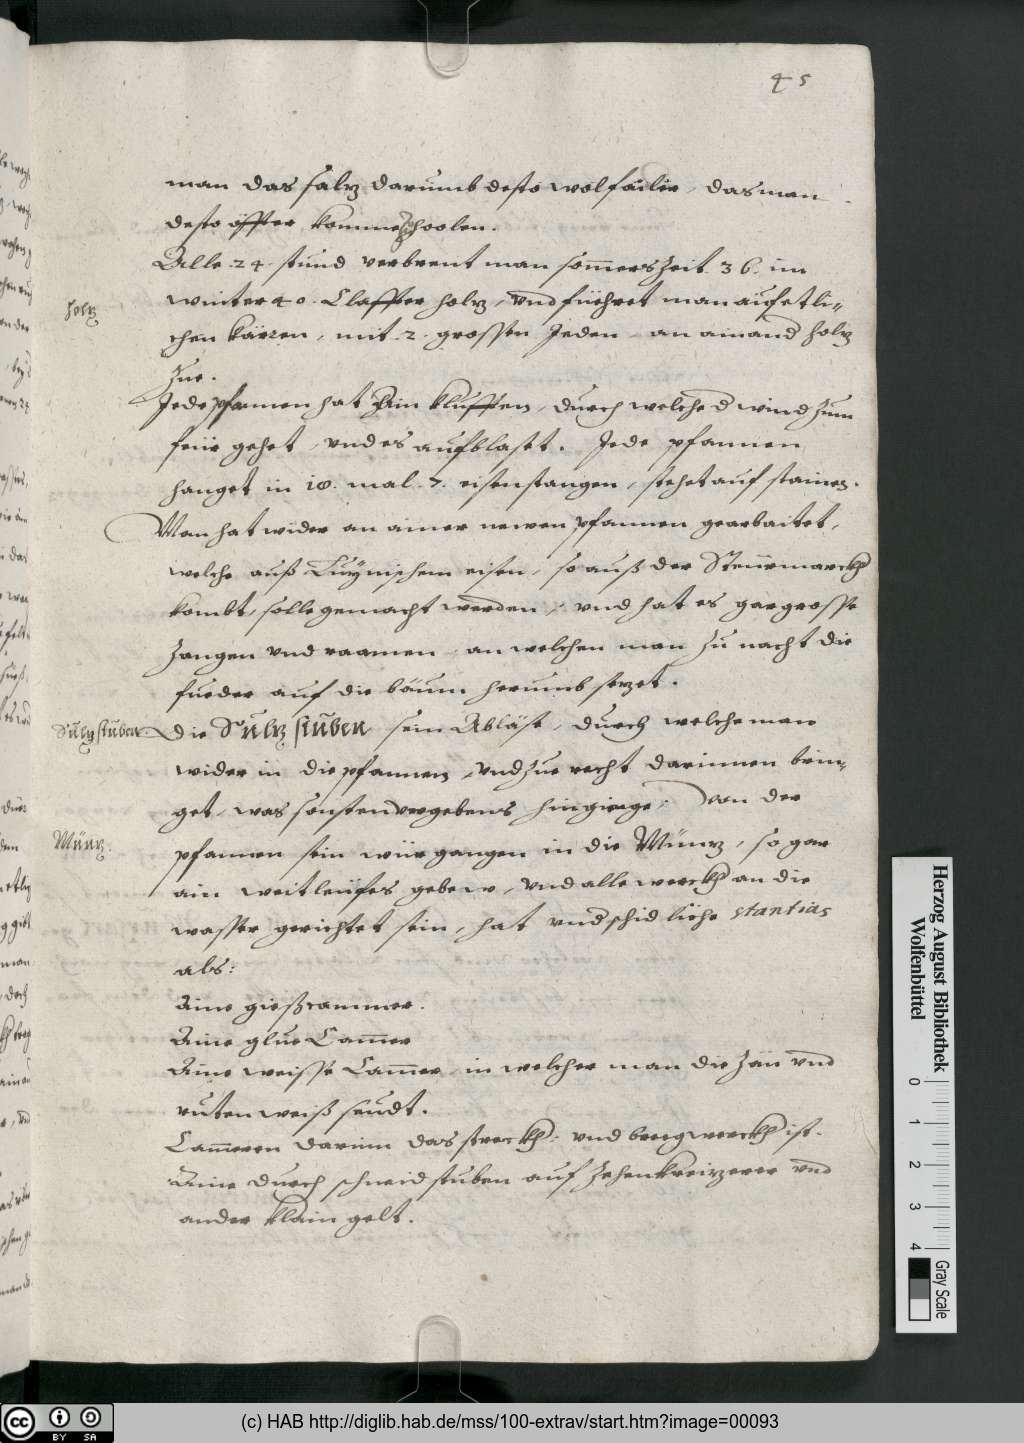 45
man das saltz darumb desto wolfailer, das man
desto öffter komme zhoolen.
Alle 24 stund verbrent man som̄erszeit 36. im
winter 40. Claffter holtz, vnd füehret man auf etli-
Holtz
chen kärren, mit 2. grossen Jeden an ainand holtz
zue.
Jede pfannen hat Ain klufften, durch welche d wind zum
feür gehet, vnd es aufblaset. Jede pfannen
hanget in 10. mal 7. eisenstangen, stehet auf stainen.
Man hat wider an ainer newen pfannen gearbaitet,
welche auß eisen, so auß der Steürmarckh
kombt, solle gemacht werden, vnd hat es gar grosse
zangen vnd raamen an welchen man zu nacht die
fueder auf die bäum herumb setzet.
Sultzstuben
Die Sultzstuben sein Abläße, durch welche man
wider in die pfannen, vnd zue recht darinnen brin-
get, was sonsten vergebens hingienge. Von der
Müntz.
pfannen sein wür gangen in die Müntz, so gar
ain weitleüfes gebew, vnd alle werckh an die
wasser gerichtet sein, hat vnd schidliche stantias
als:
Aine gießcammer.
Aine glüe Cam̄er
Aine weisse Cam̄er in welcher man die zän vnd
ruten weiß seudt.
Cam̄eren darinn das streckh: vnd bregwerckh ist.
Aine durch schneid stuben auf zehenkreizerer vnd
ander klain gelt.
Herzog August Bibliothek
Wolfenbüttel
0 1 2 3 4
Gray Scale
CC BY SA
(c) HAB http://diglib.hab.de/mss/100-extrav/start.htm?image=00093